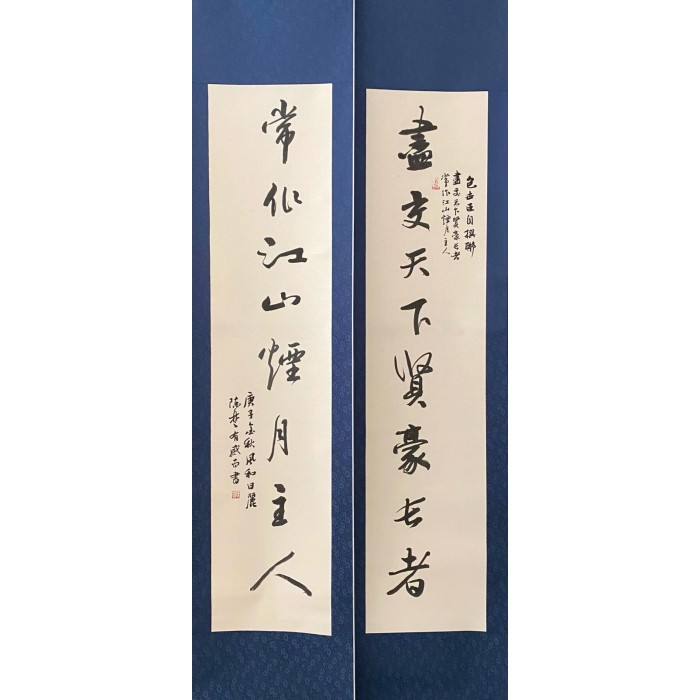 盡交天下賢豪長者
包世臣自撰聯
盡交天下賢豪長者
常作江山煙月主人
常作江山煙月主人
庚子金秋風和日麗
有感而書